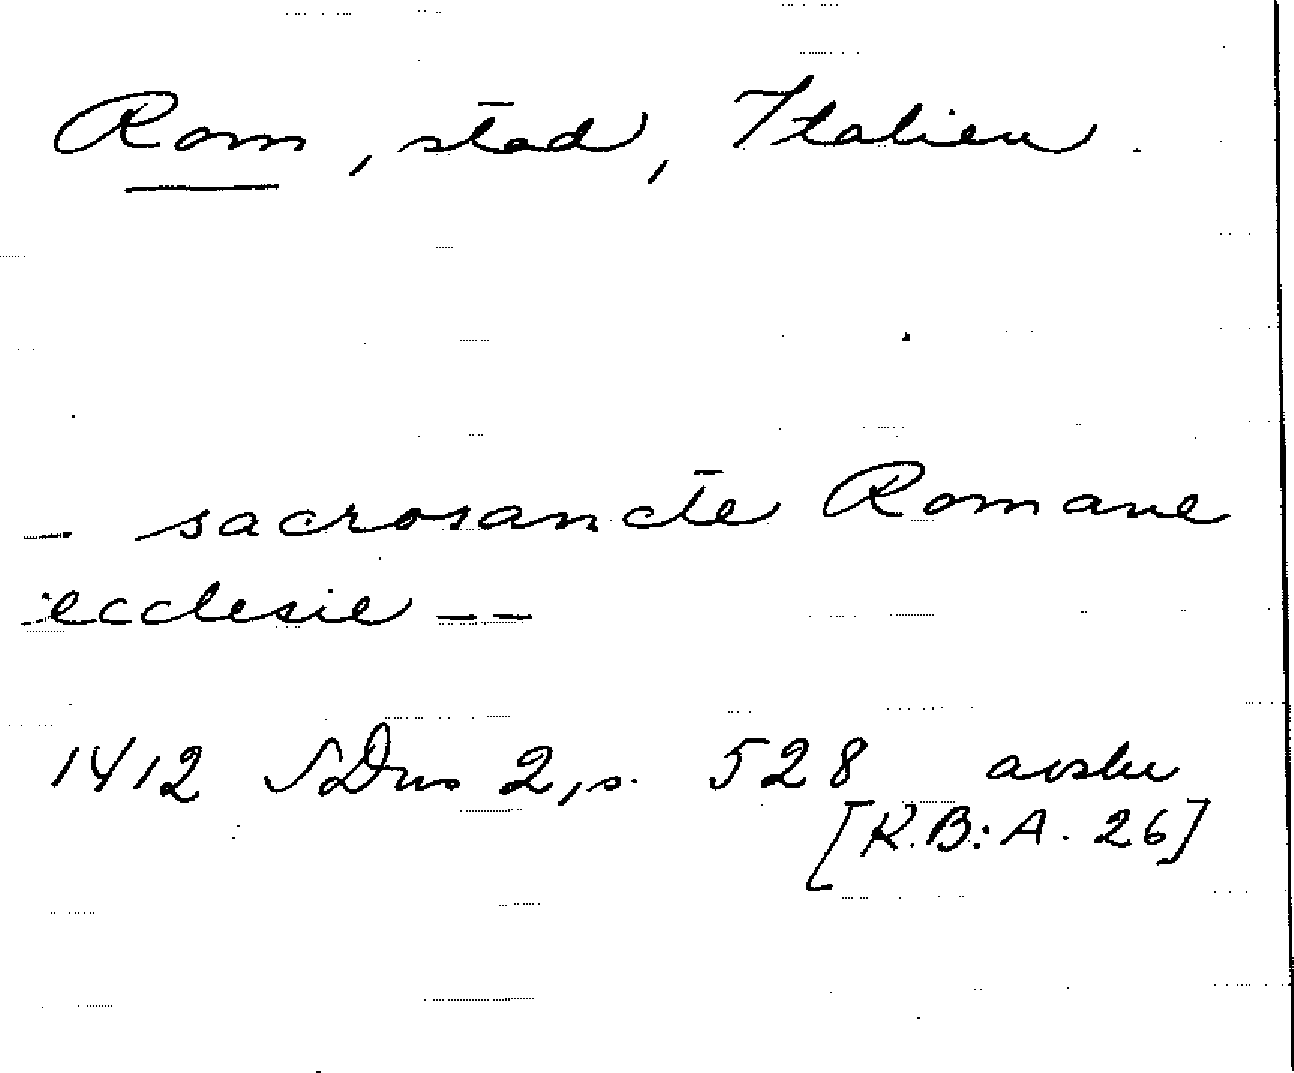 Rom, stad, Italien.
- sacrosancte Romane
ecclesie --
1412 SDns 2, s. 528 avskr
[R.B.: A. 26]